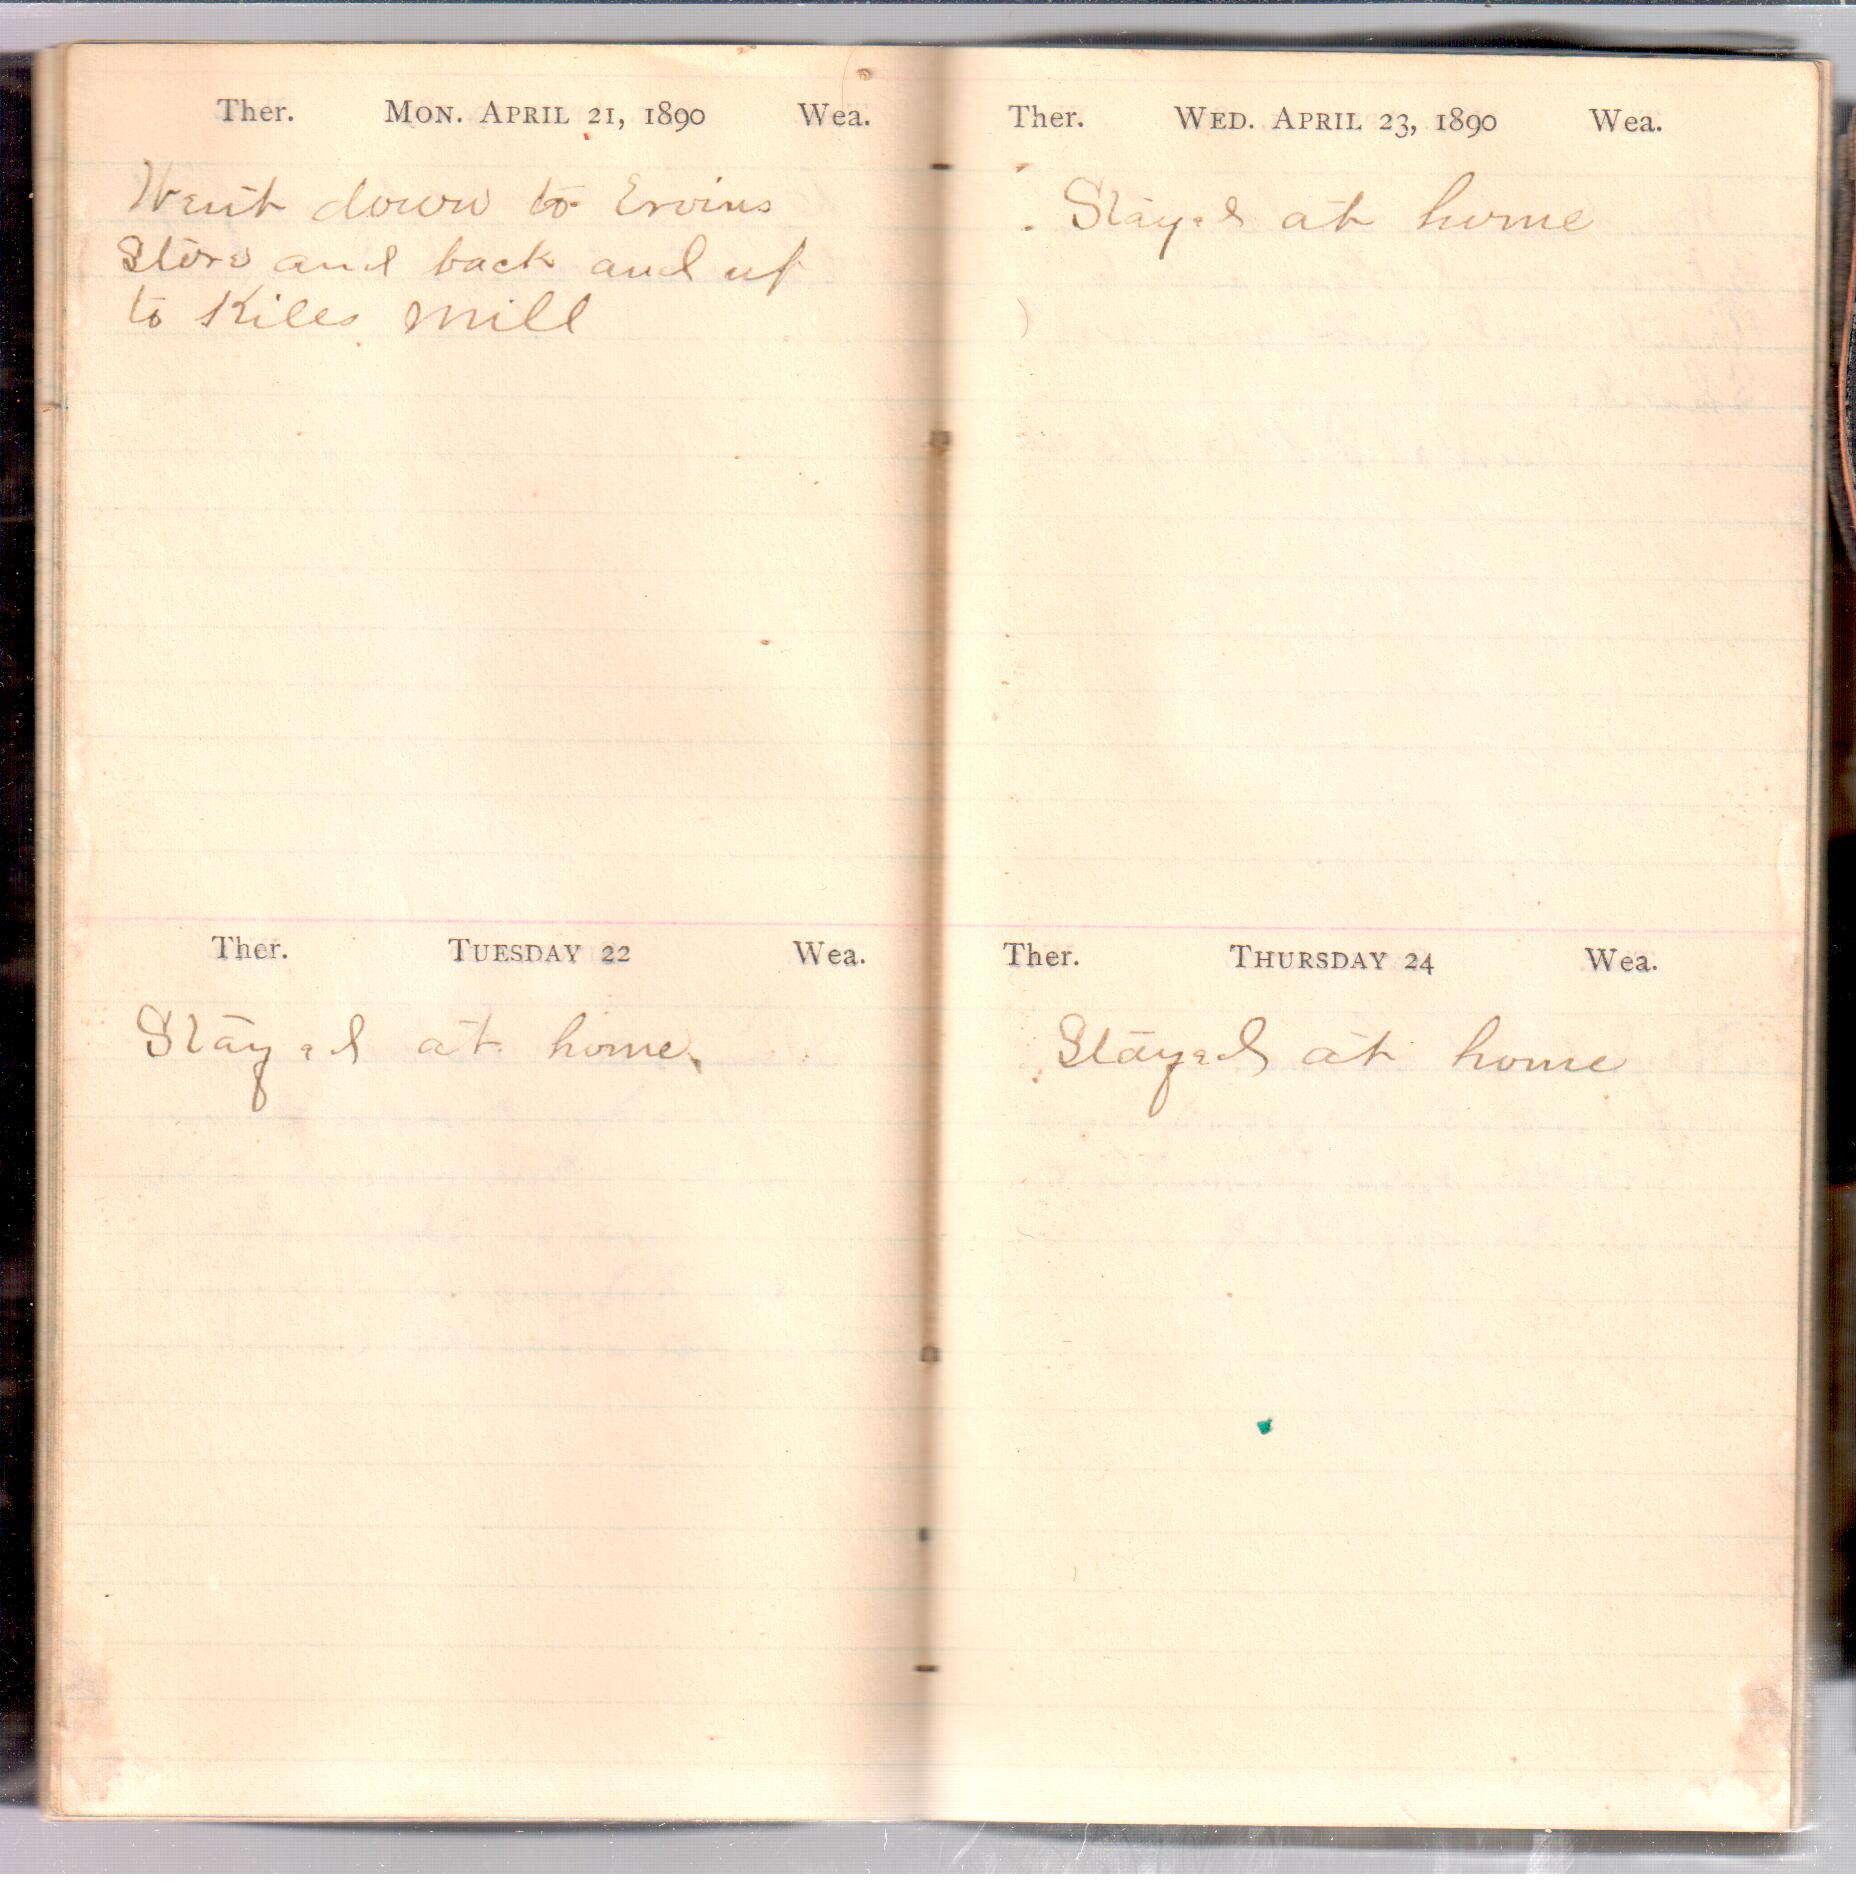 Ther. MON. APRIL 21, 1890 Wea.
Went down to Ervins
Store and back and up
to Kiles mill
Ther. TUESDAY 22 Wea.
Stayed at home
Ther. WED. APRIL 23, 1890 Wea.
Stayed at home
Ther. THURSDAY 24 Wea.
Stayed at home